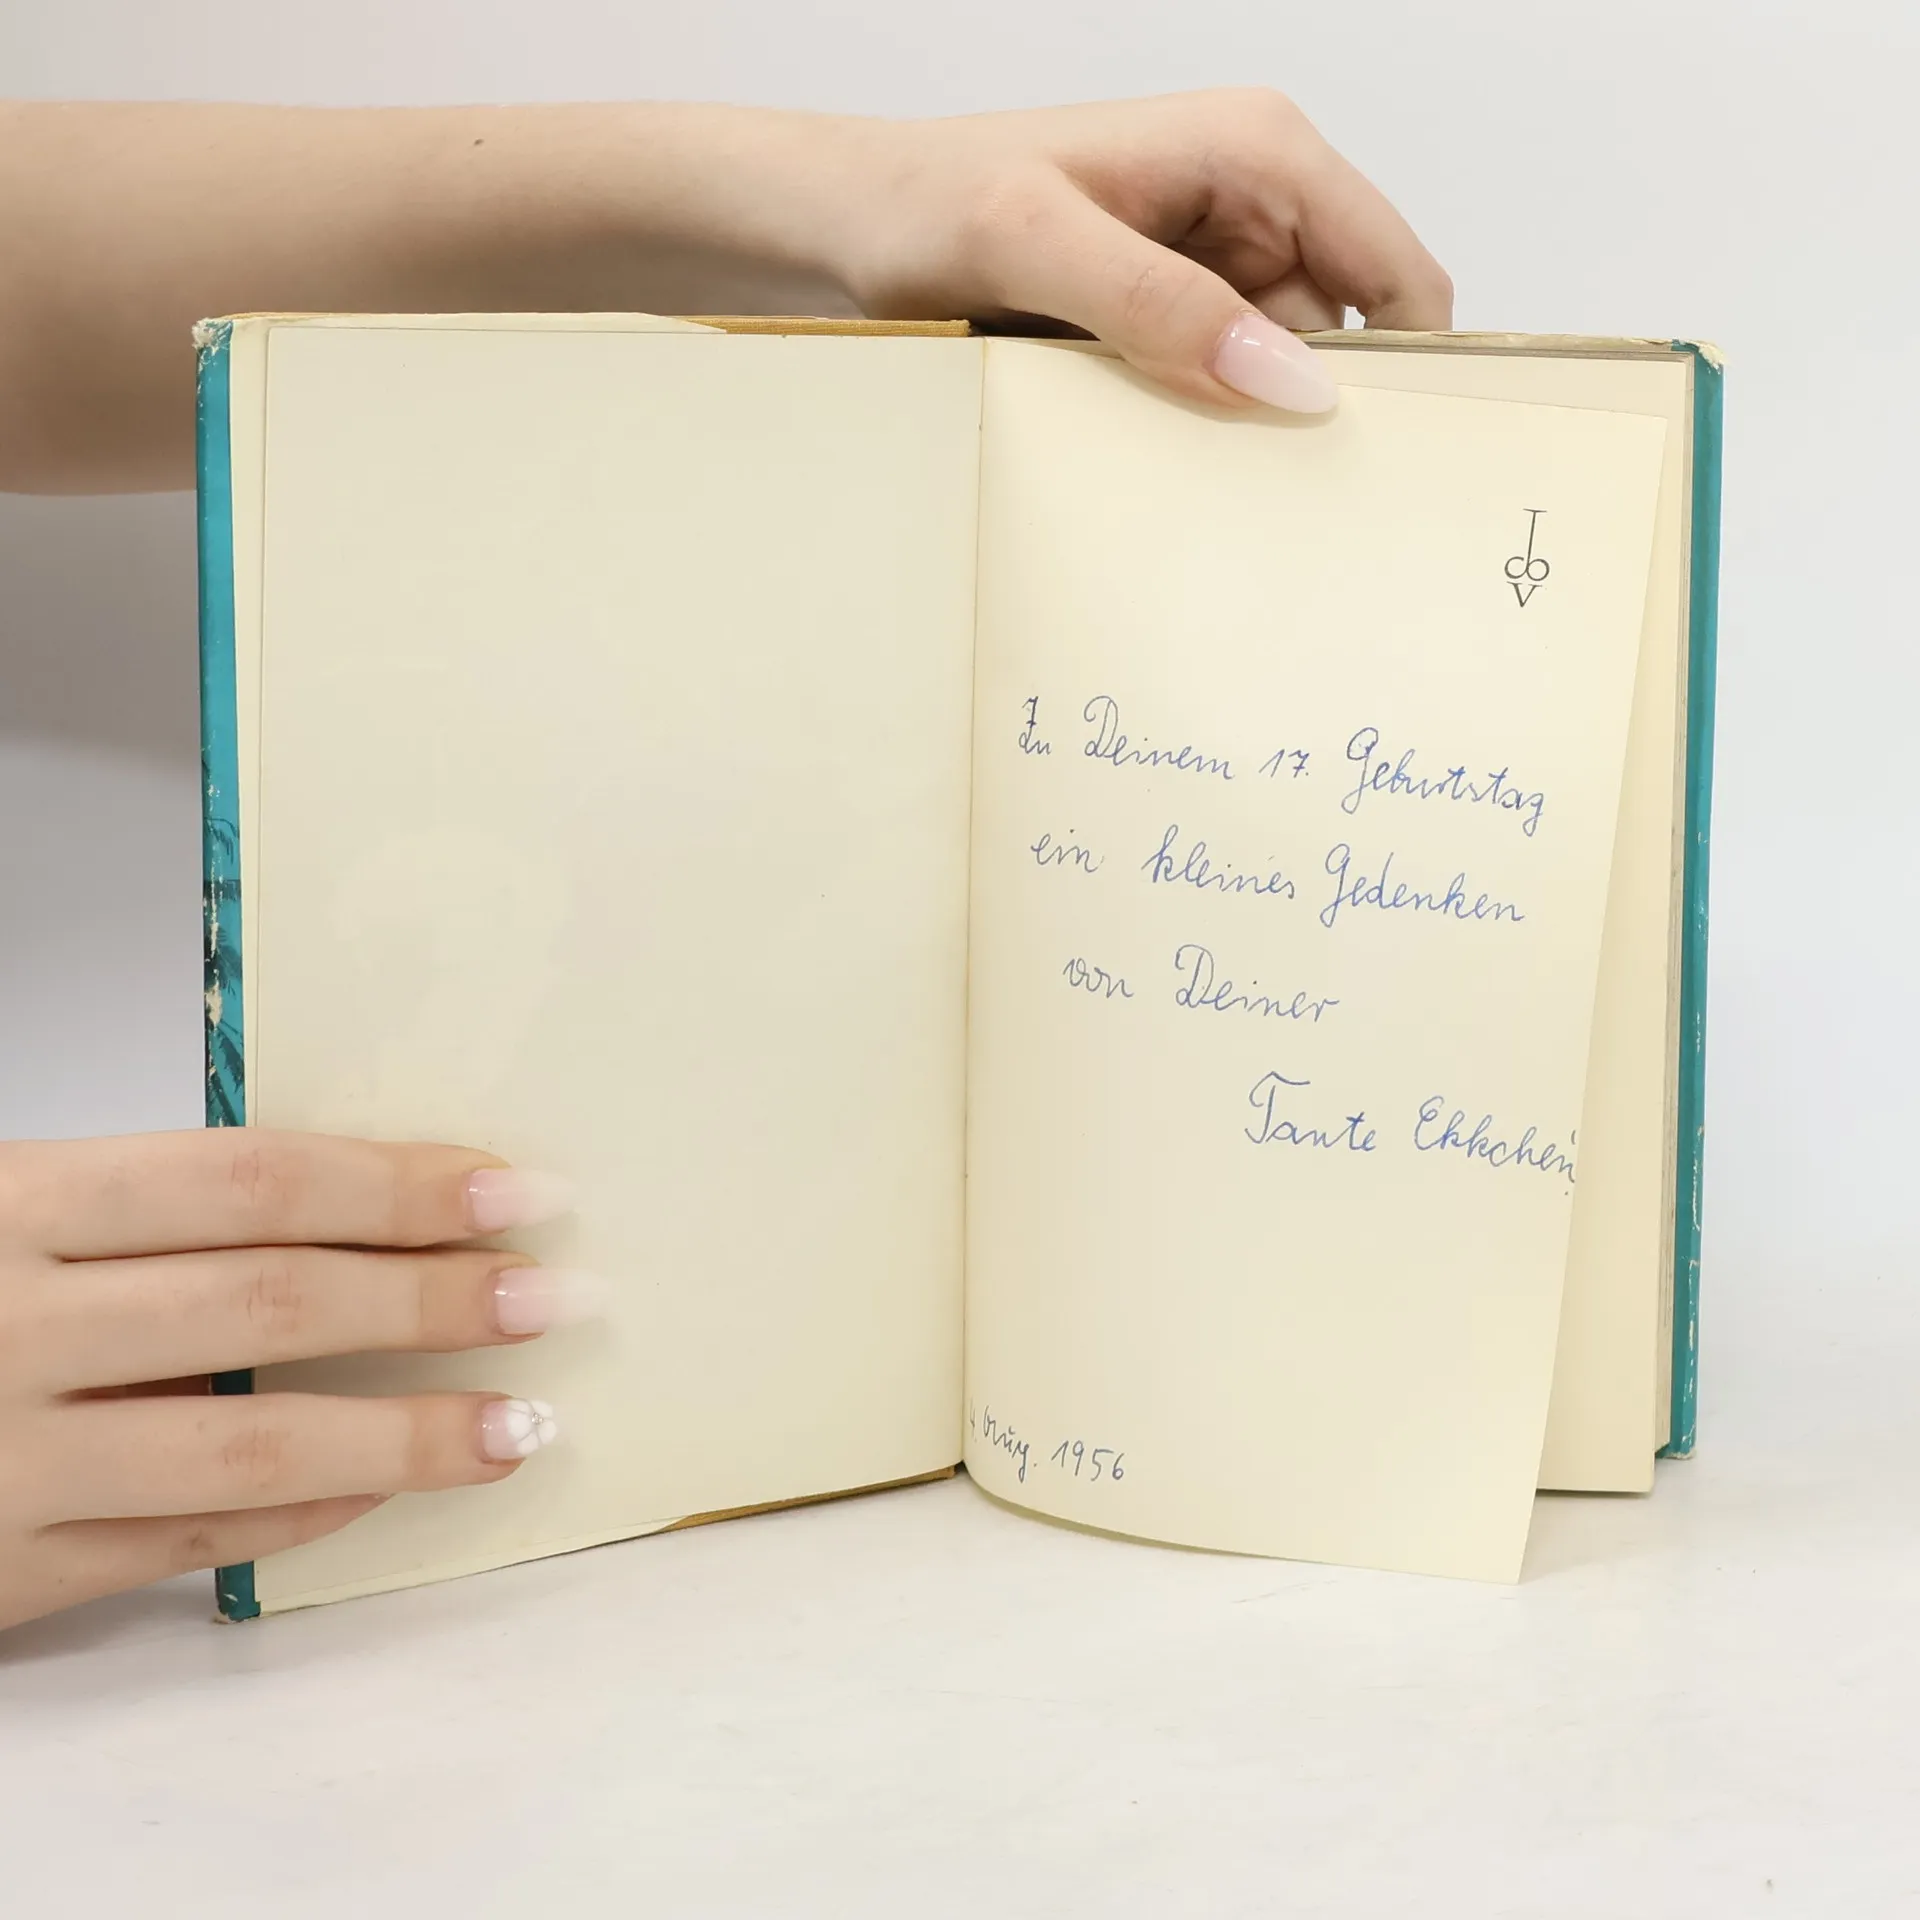 Zu Deinem 17. Geburtstag
ein kleines Gedenken
von Deiner
Tante Ekkchen
4. Aug. 1956